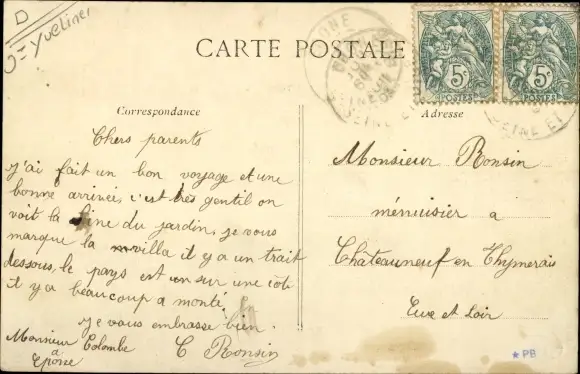 D
Yvelines
CARTE POSTALE
5c 5c
POSTES POSTES
SEINE ET
Correspondance
Adresse
Chers parents
j'ai fait un bon voyage et une
bonne arrivée, c'est très gentil on
voit la Seine du jardin, je vous
marque la villa il y a un trait
dessous, le pays est sur une côte
il y a beaucoup a monté
je vous embrasse bien.
C Ronsin
Monsieur Colombe
à
Epone
Monsieur Ronsin
ménuisier a
Châteauneuf en Thymerais
Eure et Loir
*PB